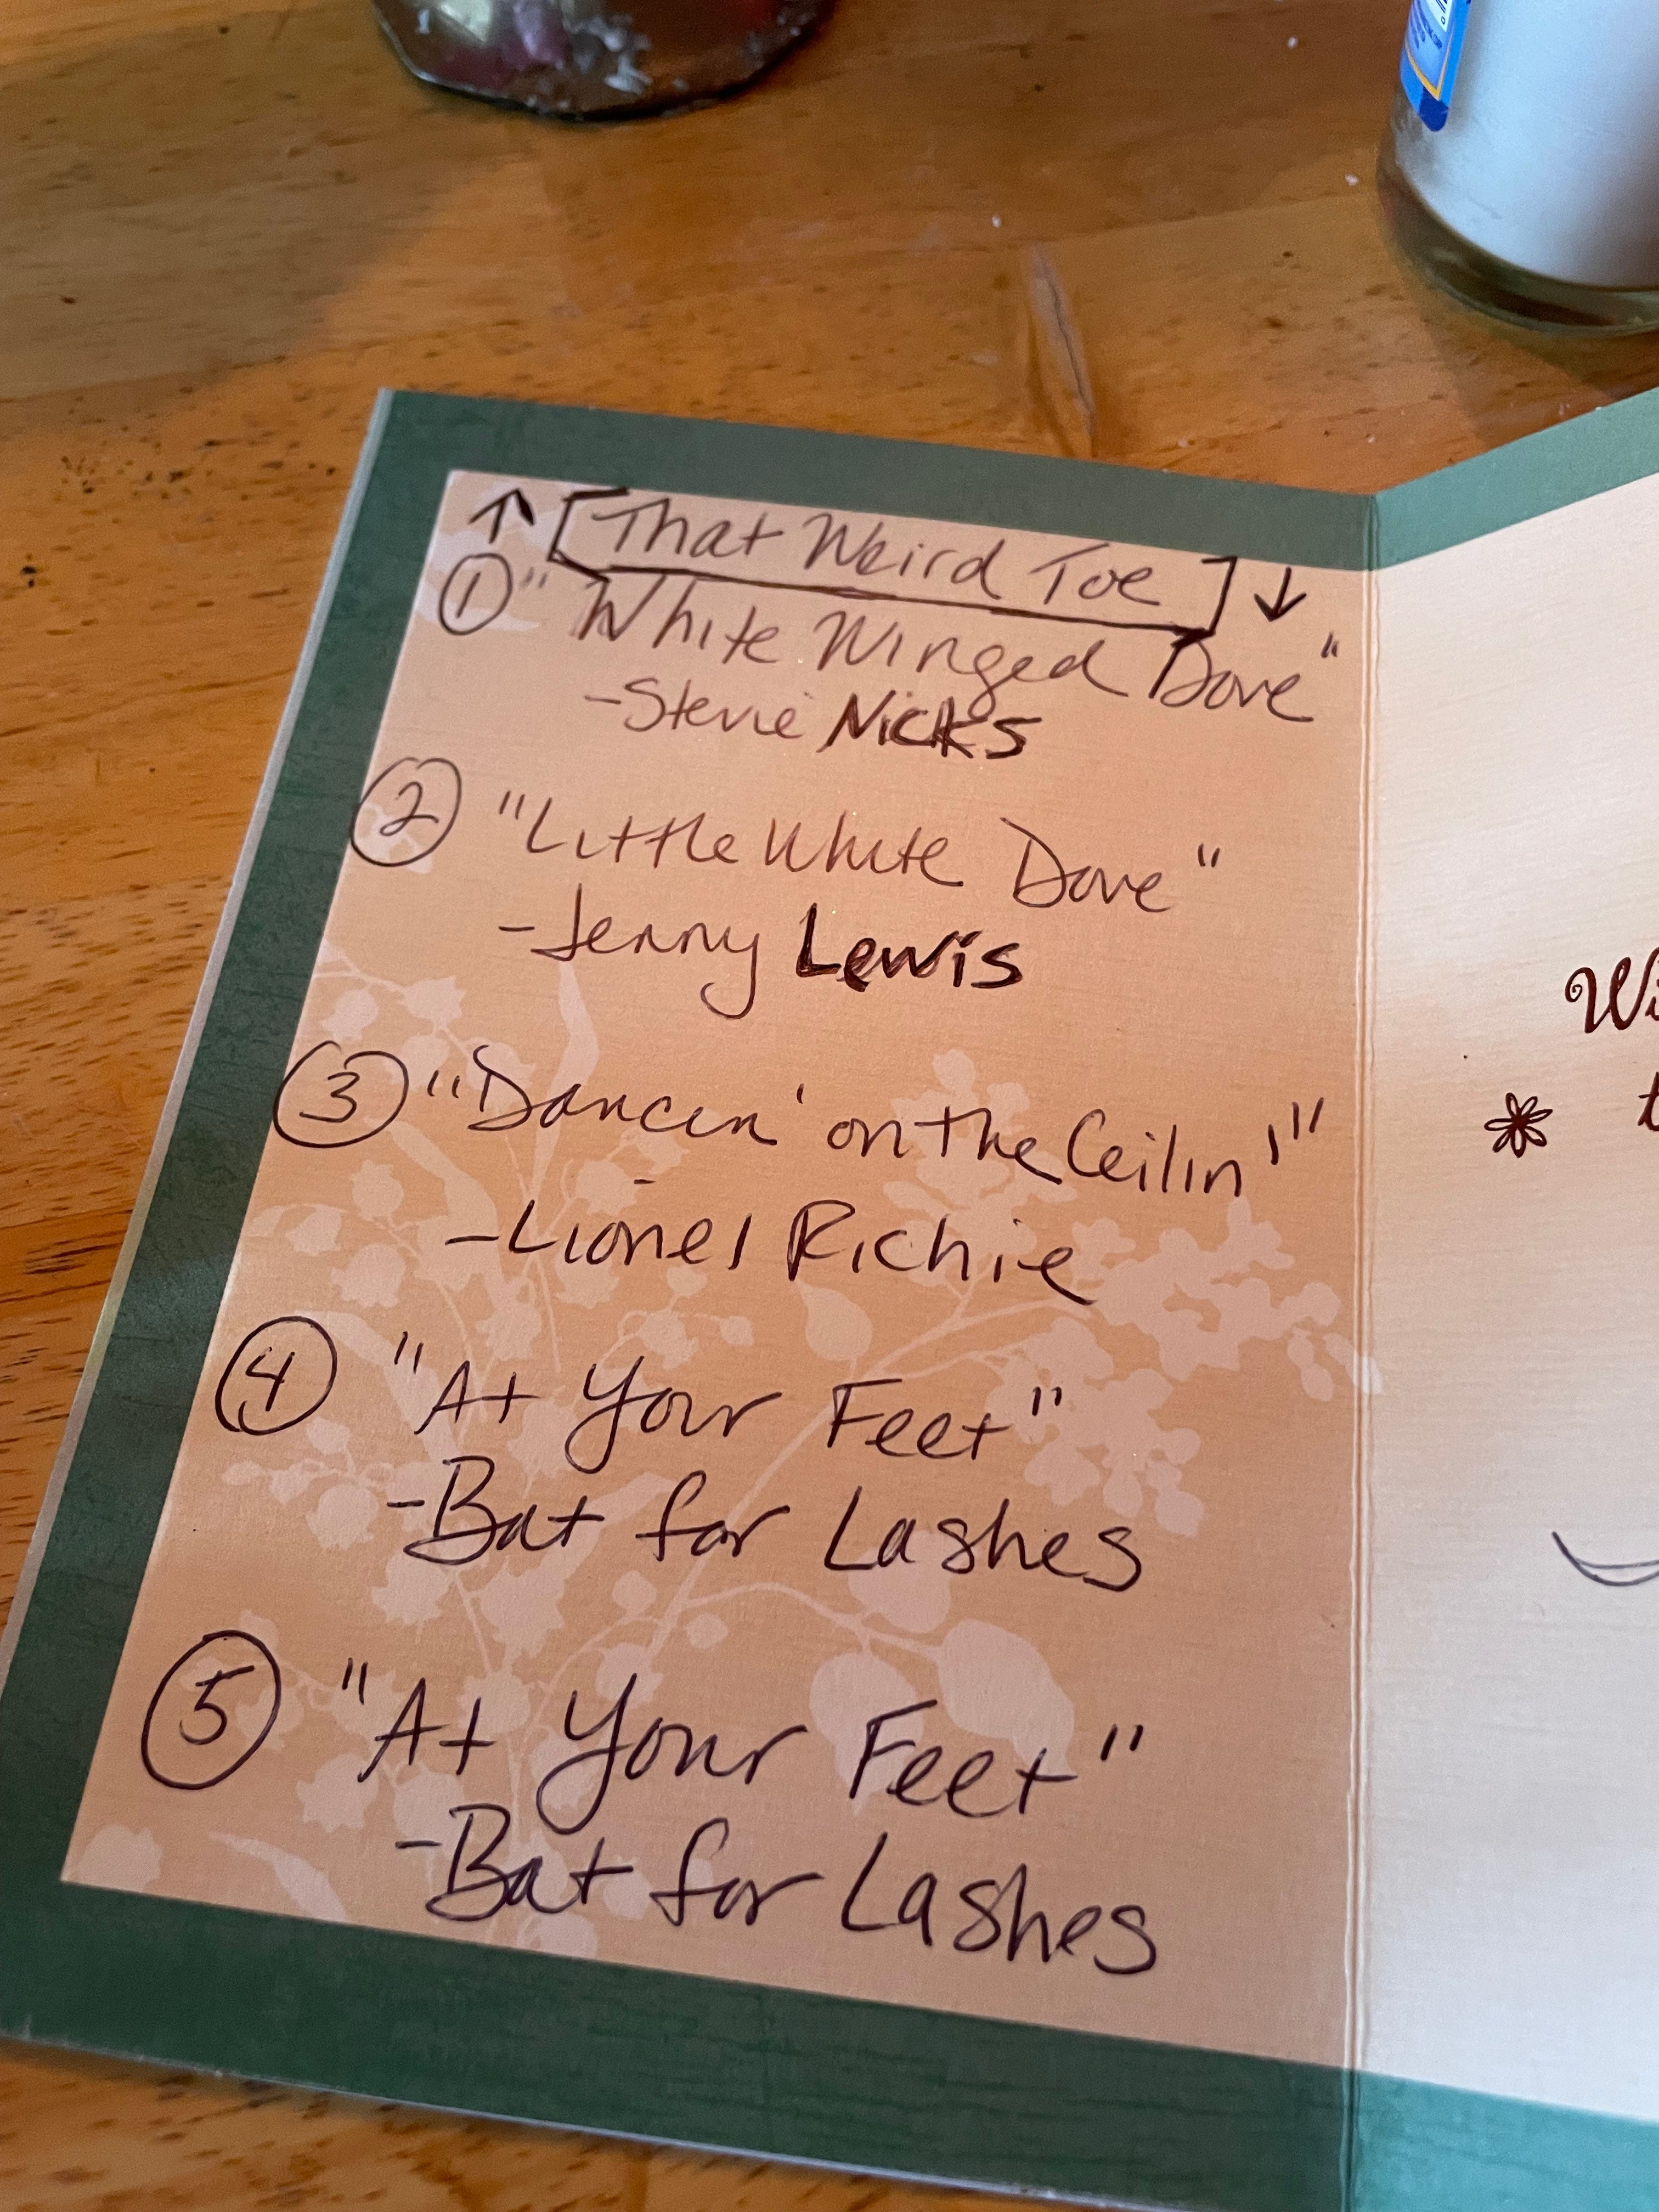 ↑ [That Weird Toe] ↓
① "White Winged Dove"
-Stevie Nicks
② "Little White Dove"
-Jenny Lewis
③ "Dancin' on the Ceilin'"
-Lionel Richie
④ "At Your Feet"
-Bat for Lashes
⑤ "At Your Feet"
-Bat for Lashes
Wi
t